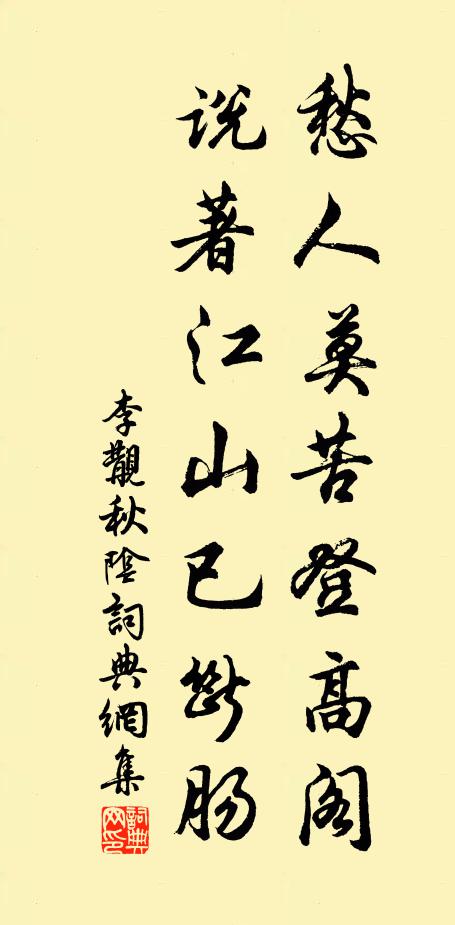 愁人莫苦登高阁
说著江山已断肠
李觏秋陰詞典網集
詞典网印